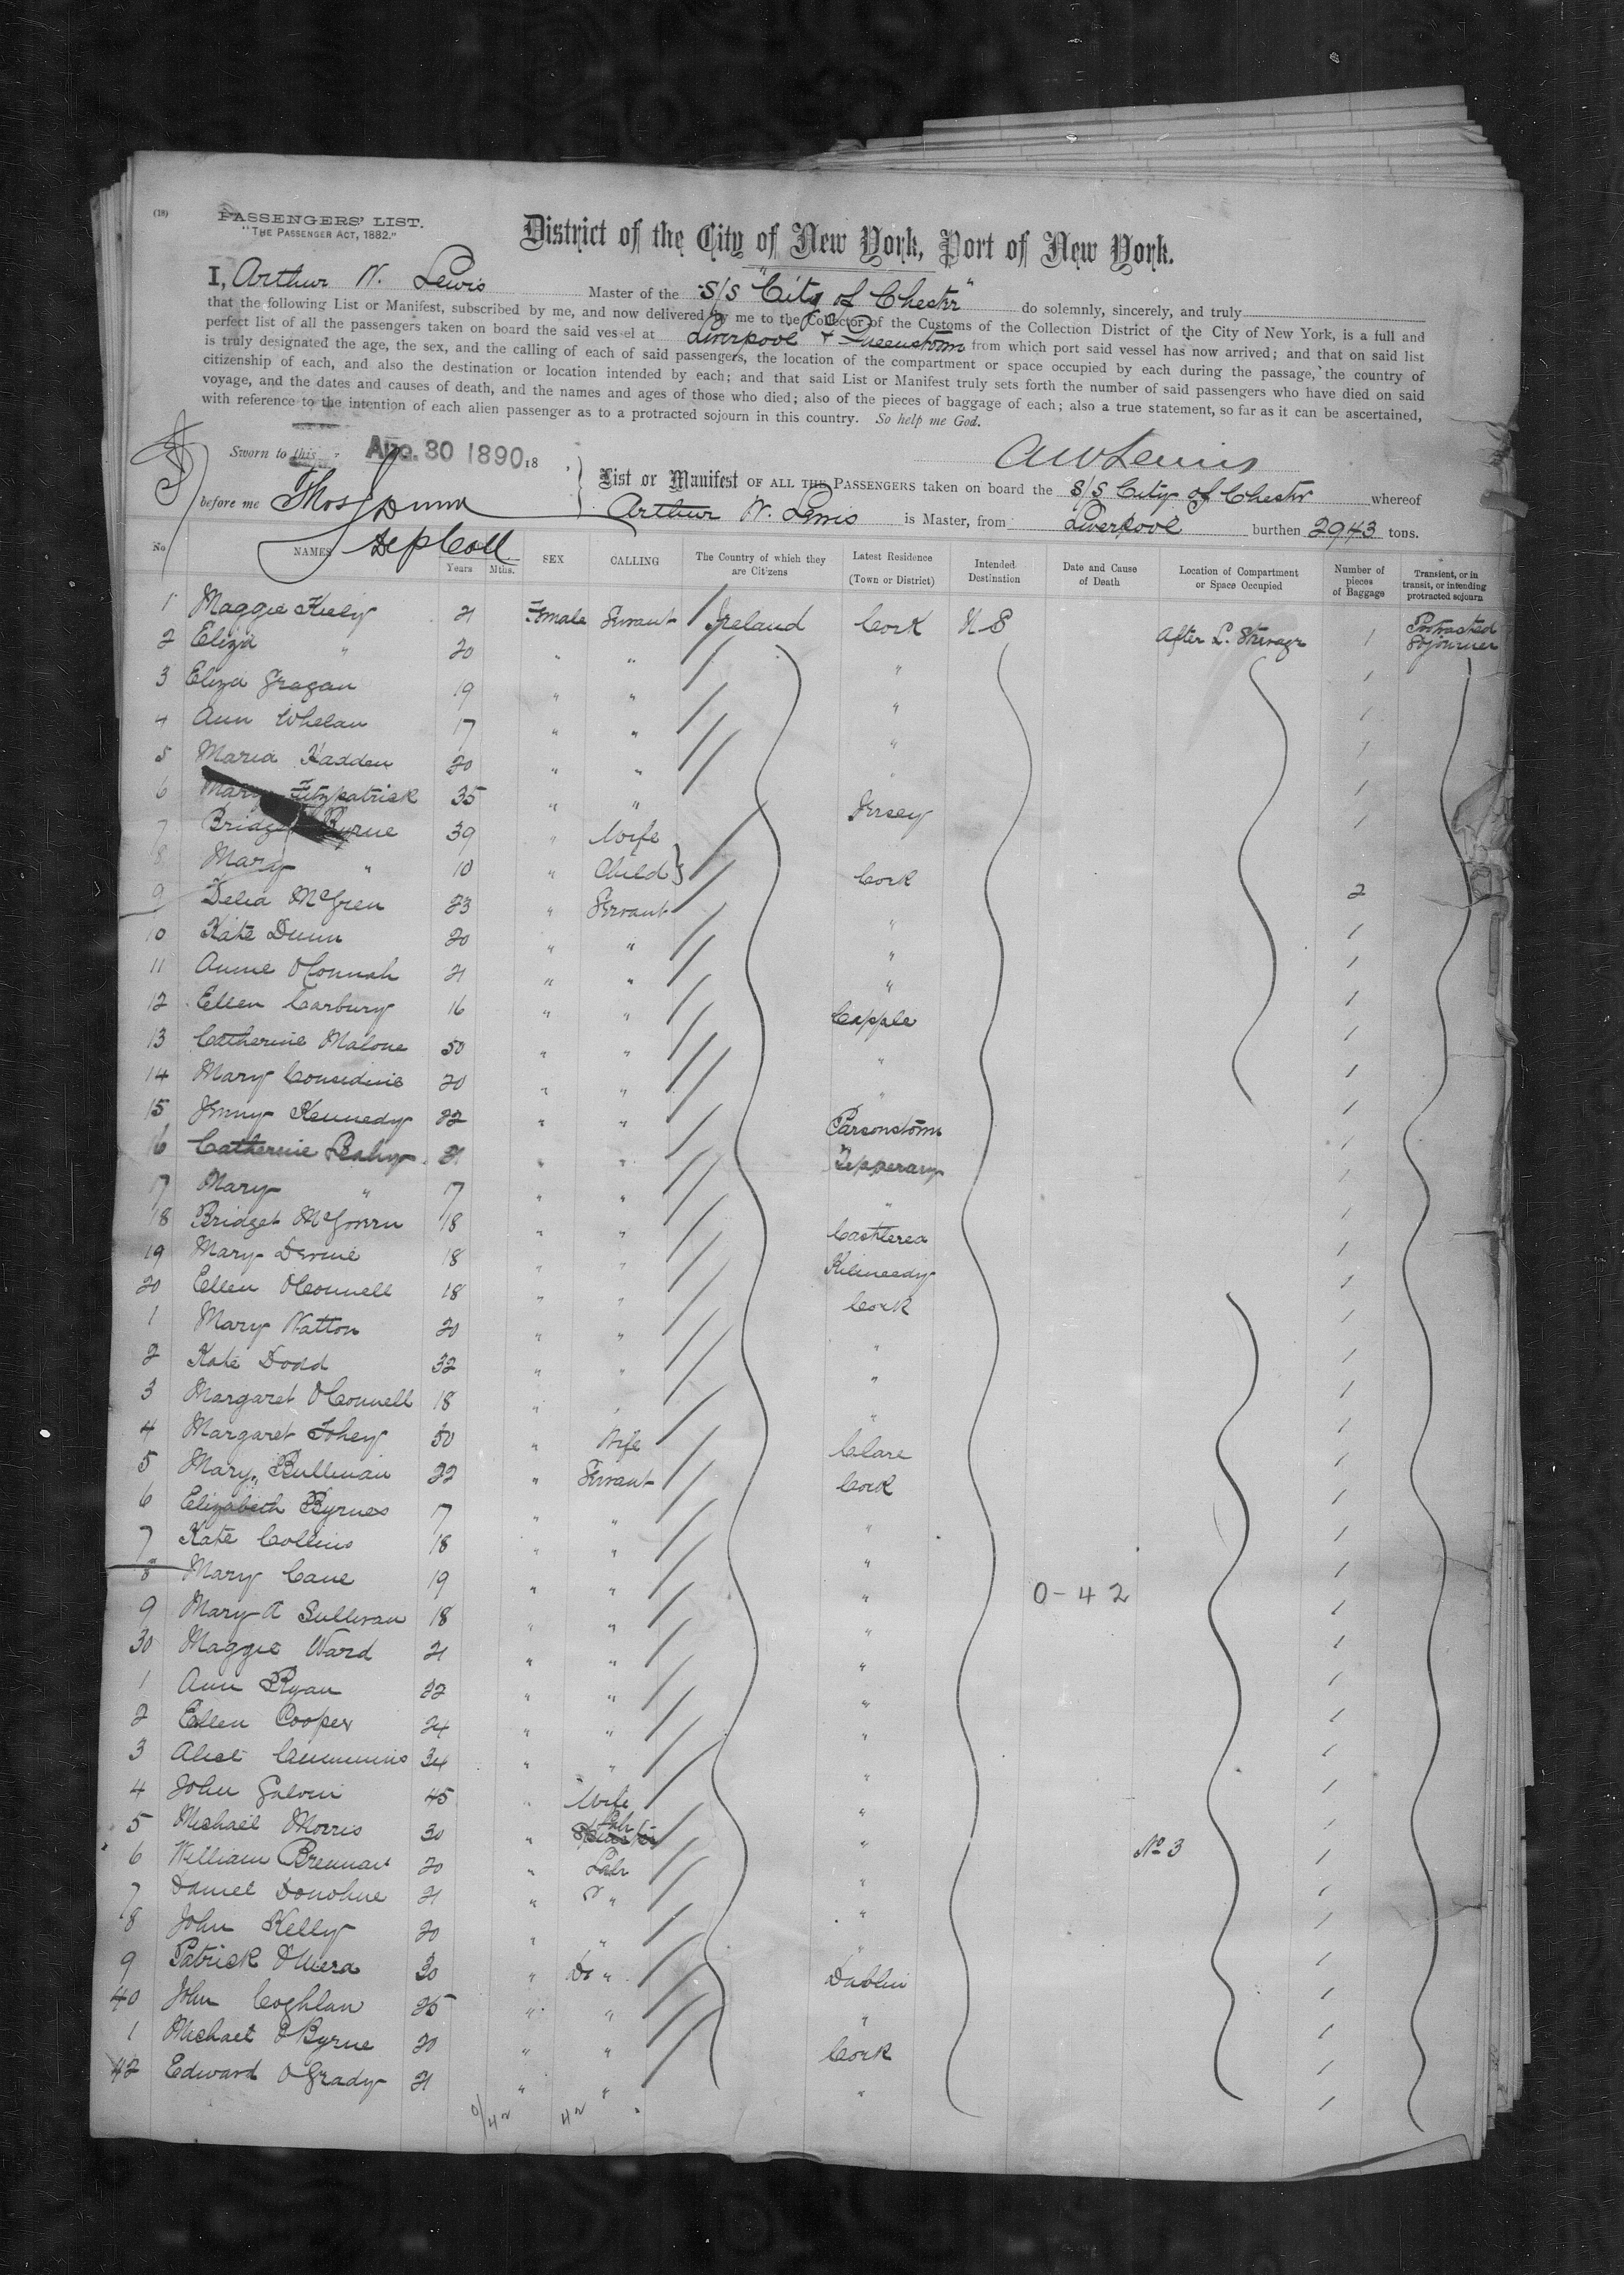 (18)
PASSENGERS' LIST.
"THE PASSENGER ACT, 1882."
District of the City of New York, Port of New York.
I, Arthur W. Lewis Master of the S/S "City of Chester" do solemnly, sincerely, and truly
that the following List or Manifest, subscribed by me, and now delivered by me to the Collector of the Customs of the Collection District of the City of New York, is a full and
perfect list of all the passengers taken on board the said vessel at Liverpool & Queenstown from which port said vessel has now arrived; and that on said list
is truly designated the age, the sex, and the calling of each of said passengers, the location of the compartment or space occupied by each during the passage, the country of
citizenship of each, and also the destination or location intended by each; and that said List or Manifest truly sets forth the number of said passengers who have died on said
voyage, and the dates and causes of death, and the names and ages of those who died; also of the pieces of baggage of each; also a true statement, so far as it can be ascertained,
with reference to the intention of each alien passenger as to a protracted sojourn in this country. So help me God.
Sworn to this AUG. 30 1890 18
A W Lewis
before me Thos J Dunn
Dep Coll
List or Manifest OF ALL THE PASSENGERS taken on board the S/S City of Chester whereof
Arthur W. Lewis is Master, from Liverpool burthen 2943 tons.
No NAMES Years Mths. SEX CALLING The Country of which they are Citizens Latest Residence (Town or District) Intended Destination Date and Cause of Death Location of Compartment or Space Occupied Number of pieces of Baggage Transient, or in transit, or intending protracted sojourn
1 Maggie Kiely 21 Female Servant Ireland Cork U S After L. Steerage 1 Protracted Sojourner
2 Eliza " 20 " " " 1
3 Eliza Gragan 19 " " " 1
4 Ann Whelan 17 " " " 1
5 Maria Hadden 20 " " " 1
6 Mary Fitzpatrick 35 " " Jersey 1
7 Bridget Byrne 39 " Wife
8 Mary " 10 " Child } Cork 2
9 Delia McGren 23 " Servant " 1
10 Kate Dunn 20 " " " 1
11 Annie O'Connah 21 " " " 1
12 Ellen Carbury 16 " " Capple 1
13 Catherine Malone 50 " " " 1
14 Mary Considine 20 " " " 1
15 Jenny Kennedy 22 " " Parsonstown 1
16 Catherine Leahy 21 " " Tipperary 1
17 Mary " 17 " " " 1
18 Bridget McGowrn 18 " " Castlerea 1
19 Mary Devine 18 " " Kilmeedy 1
20 Ellen O'Connell 18 " " Cork 1
1 Mary Natton 20 " " " 1
2 Kate Dodd 32 " " " 1
3 Margaret O'Connell 18 " " " 1
4 Margaret Fohey 50 " Wife Clare 1
5 Mary Bullman 22 " Servant Cork 1
6 Elizabeth Byrnes 17 " " " 1
7 Kate Collins 18 " " " 1
8 Mary Cane 19 " " " 0-42 1
9 Mary A Sullivan 18 " " " 1
30 Maggie Ward 21 " " " 1
1 Ann Ryan 22 " " " 1
2 Ellen Cooper 24 " " " 1
3 Alice Cummins 34 " " " 1
4 John Galvin 45 " Wife " 1
5 Michael Morris 30 " Lab " No 3 1
6 William Brennan 20 " Lab " 1
7 Daniel Donohue 21 " " " 1
8 John Kelly 20 " " " 1
9 Patrick O'Mera 30 " Do " Dublin 1
40 John Coghlan 25 " " " 1
1 Michael O'Byrne 20 " " Cork 1
42 Edward O'Grady 21 " " " 1
0/42 42